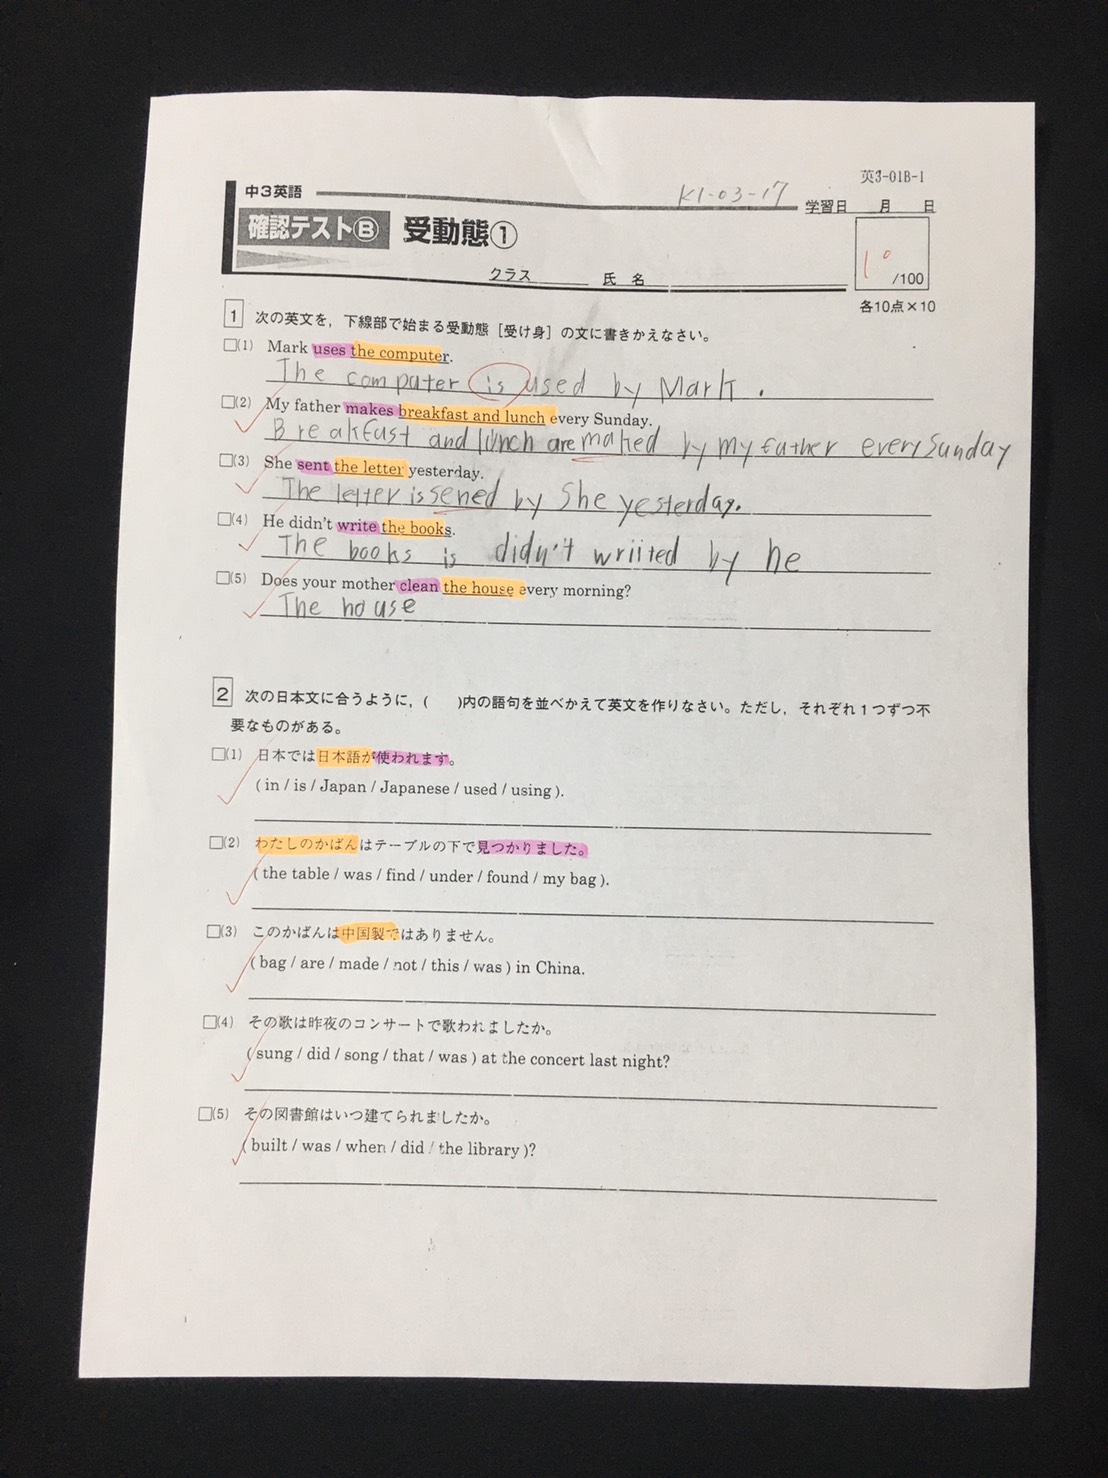 英3-01B-1
中3英語
K1-03-17
学習日 月 日
確認テストⒷ 受動態①
10
/100
クラス 氏 名
各10点×10
1 次の英文を，下線部で始まる受動態［受け身］の文に書きかえなさい。
□(1) Mark uses the computer.
The computer is used by Mark.
□(2) My father makes breakfast and lunch every Sunday.
Breakfast and lunch are maked by my father every Sunday
□(3) She sent the letter yesterday.
The letter is sened by She yesterday.
□(4) He didn't write the books.
The books is didn't wriited by he
□(5) Does your mother clean the house every morning?
The house
2 次の日本文に合うように，( )内の語句を並べかえて英文を作りなさい。ただし，それぞれ1つずつ不
要なものがある。
□(1) 日本では日本語が使われます。
( in / is / Japan / Japanese / used / using ).
□(2) わたしのかばんはテーブルの下で見つかりました。
( the table / was / find / under / found / my bag ).
□(3) このかばんは中国製ではありません。
( bag / are / made / not / this / was ) in China.
□(4) その歌は昨夜のコンサートで歌われましたか。
( sung / did / song / that / was ) at the concert last night?
□(5) その図書館はいつ建てられましたか。
( built / was / when / did / the library )?